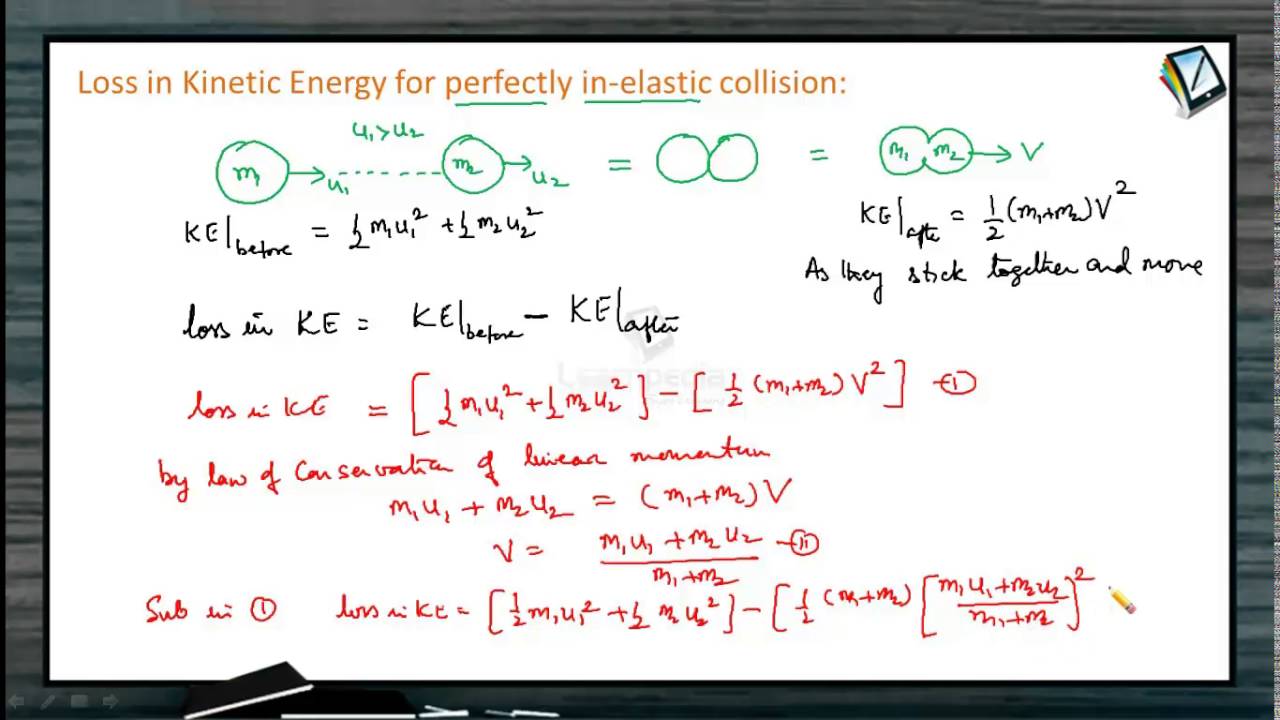 Loss in Kinetic Energy for perfectly in-elastic collision:
u₁>u₂
m₁ u₁ m₂ u₂ = = m₁ m₂ V
KE|before = ½m₁u₁² + ½m₂u₂²
KE|after = ½(m₁+m₂)V²
As they stick together and move
loss in KE = KE|before − KE|after
Learnpedia
loss in KE = [½m₁u₁² + ½m₂u₂²] − [½(m₁+m₂)V²] —Ⓘ
by law of Conservation of linear momentum
m₁u₁ + m₂u₂ = (m₁+m₂)V
V = (m₁u₁ + m₂u₂)/(m₁+m₂) —(II)
Sub in ① loss in KE = [½m₁u₁² + ½m₂u₂²] − [½(m₁+m₂)[(m₁u₁+m₂u₂)/(m₁+m₂)]²